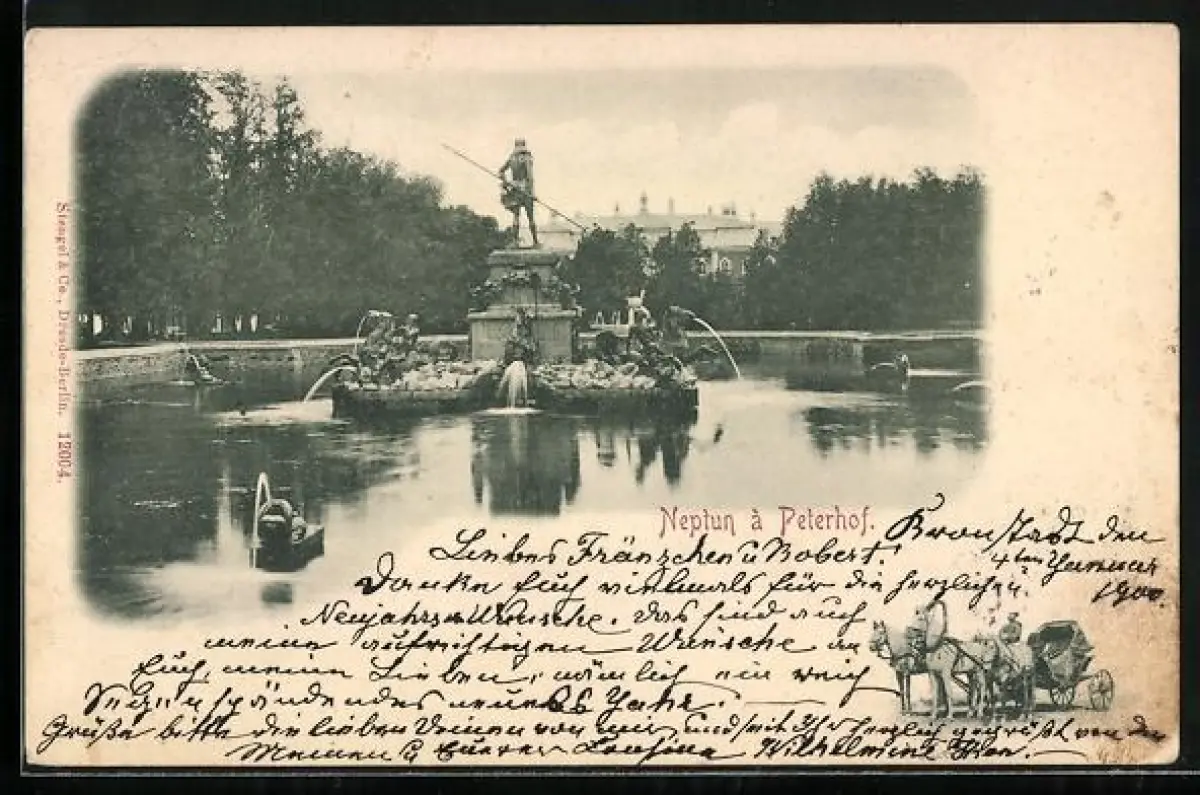 Stengel & Co., Dresde-Berlin. 12004.
Neptun à Peterhof.
Kronstadt den
4ten Januar
1900.
Liebes Fränzchen u Robert!
Danke Euch vielmals für die herzlichen
Neujahrs Wünsche. das sind auch
meine aufrichtigen Wünsche an
Euch, meine Lieben, nämlich ein reich
Segen spändendes neues Jahr.
Grüße bitte die lieben Deinen von mir, und seit Ihr herzlich gegrüßt von den
Meinen u Eurer Wilhelmine